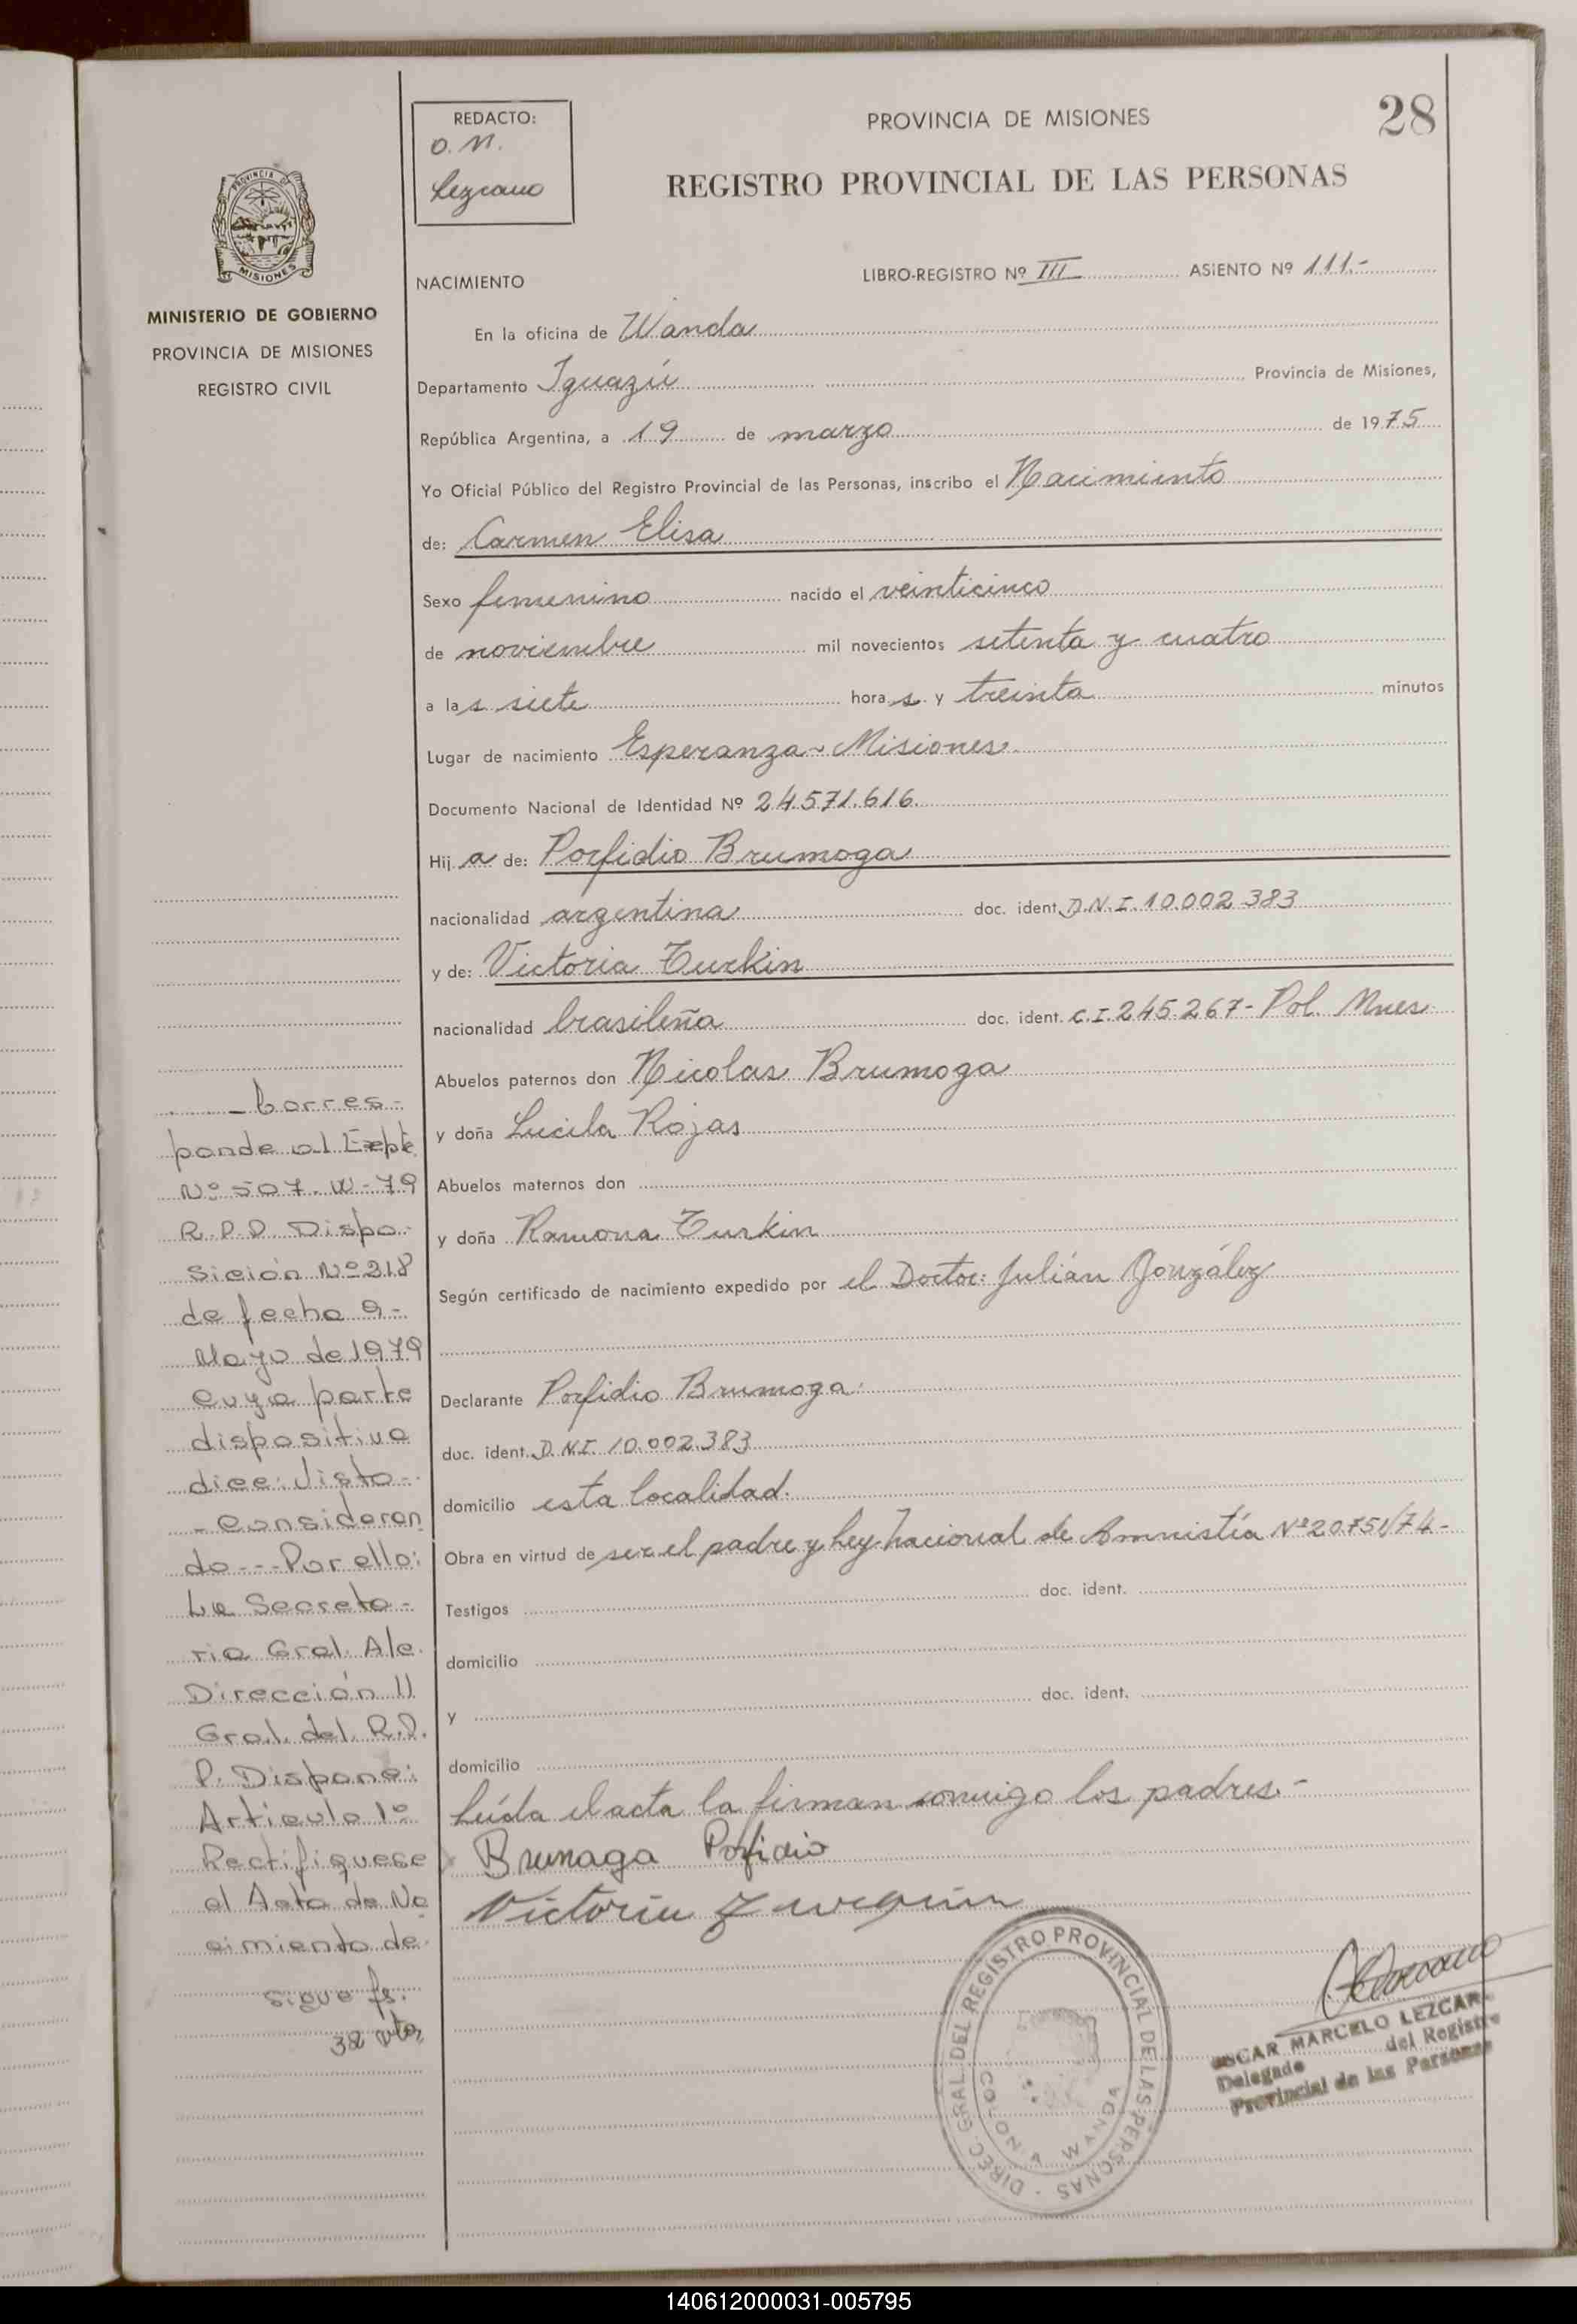 28
REDACTO:
O. M.
Lezcano
PROVINCIA DE MISIONES
REGISTRO PROVINCIAL DE LAS PERSONAS
PROVINCIA DE
MISIONES
MINISTERIO DE GOBIERNO
PROVINCIA DE MISIONES
REGISTRO CIVIL
NACIMIENTO LIBRO-REGISTRO Nº III ASIENTO Nº 111.-
En la oficina de Wanda
Departamento Iguazú Provincia de Misiones,
República Argentina, a 19 de marzo de 1975
Yo Oficial Público del Registro Provincial de las Personas, inscribo el Nacimiento
de: Carmen Elisa
Sexo femenino nacido el veinticinco
de noviembre mil novecientos setenta y cuatro
a las siete horas y treinta minutos
Lugar de nacimiento Esperanza - Misiones
Documento Nacional de Identidad Nº 24.571.616
Hija de: Porfidio Brumoga
nacionalidad argentina doc. ident. D.N.I. 10.002.383
y de: Victoria Turkin
nacionalidad brasileña doc. ident. C.I. 245.267- Pol. Mnes
Abuelos paternos don Nicolas Brumoga
y doña Lucila Rojas
Abuelos maternos don
y doña Ramona Turkin
Según certificado de nacimiento expedido por el Doctor: Julián González
Declarante Porfidio Brumoga.
doc. ident. D.N.I. 10.002.383
domicilio esta localidad.
Obra en virtud de ser el padre y Ley Nacional de Amnistía Nº 20.751/74-
Testigos doc. ident.
domicilio
y doc. ident.
domicilio
Leída el acta la firman conmigo los padres.-
Brumaga Porfidio
Victoria
- Corres-
ponde al Expte
Nº 507-W-79
R.P.P. Dispo-
sición Nº 218
de fecha 9-
Mayo de 1979
cuya parte
dispositiva
dice: Visto-
- Consideran
do--- Por ello:
La Secreta-
ria Gral. A/c.
Dirección //
Gral. del R.P.
P. Dispone:
Artículo 1º
Rectifíquese
el Acta de Na
cimiento de
sigue fs.
38 vta
DIREC. GRAL. DEL REGISTRO PROVINCIAL DE LAS PERSONAS -
WANDA
OSCAR MARCELO LEZCANO
Delegado del Registro
Provincial de las Personas
140612000031-005795